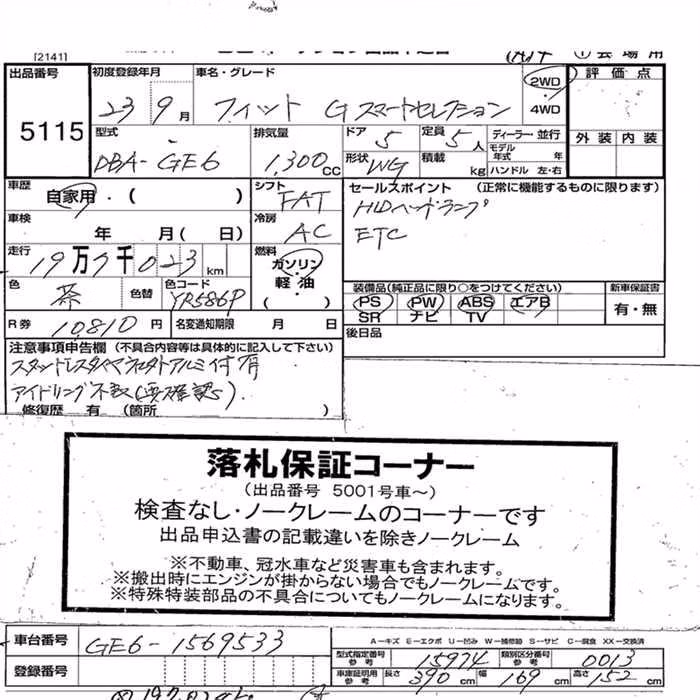 [2141]
① 会場用
出品番号 初度登録年月 車名・グレード 2WD・4WD 評価点
5115 23 9月 フィット G スマートセレクション
型式 排気量 ドア 定員 ディーラー・並行 外装 内装
DBA-GE6 1,300cc 5 5人 モデル年式 年
形状 WG 積載 kg ハンドル 左・右
車歴 シフト セールスポイント (正常に機能するものに限ります)
自家用・( ) FAT HIDヘッドランプ
車検 年 月( 日) 冷房 AC ETC
走行 19万7千023km 燃料 ガソリン・軽油・( )
色 茶 色替 色コード YR586P
装備品(純正品に限り○をつけてください) 新車保証書
PS PW ABS エアB 有・無
SR ナビ TV
R券 10810円 名変通知期限 月 日 後日品
注意事項申告欄 (不具合内容等は具体的に記入して下さい)
スタッドレスタイヤ アルミ付
アイドリング不良(要確認)
修復歴 有 (箇所 )
落札保証コーナー
(出品番号 5001号車~)
検査なし・ノークレームのコーナーです
出品申込書の記載違いを除きノークレーム
※不動車、冠水車など災害車も含まれます。
※搬出時にエンジンが掛からない場合でもノークレームです。
※特殊特装部品の不具合についてもノークレームになります。
車台番号 GE6-1569533
A-キズ E-エクボ U-凹み W-補修跡 S-サビ C-腐食 XX-交換済
型式指定番号 参考 15974 類別区分番号 参考 0013
登録番号
車庫証明用 参考 長さ 390cm 幅 169cm 高さ 152cm